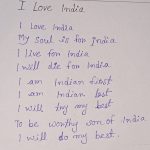 I Love India
I Love India
My Soul is for India
I live for India
I will die for India
I am Indian first
I am Indian last
I will try my best
To be worthy son of India
I will do my best.